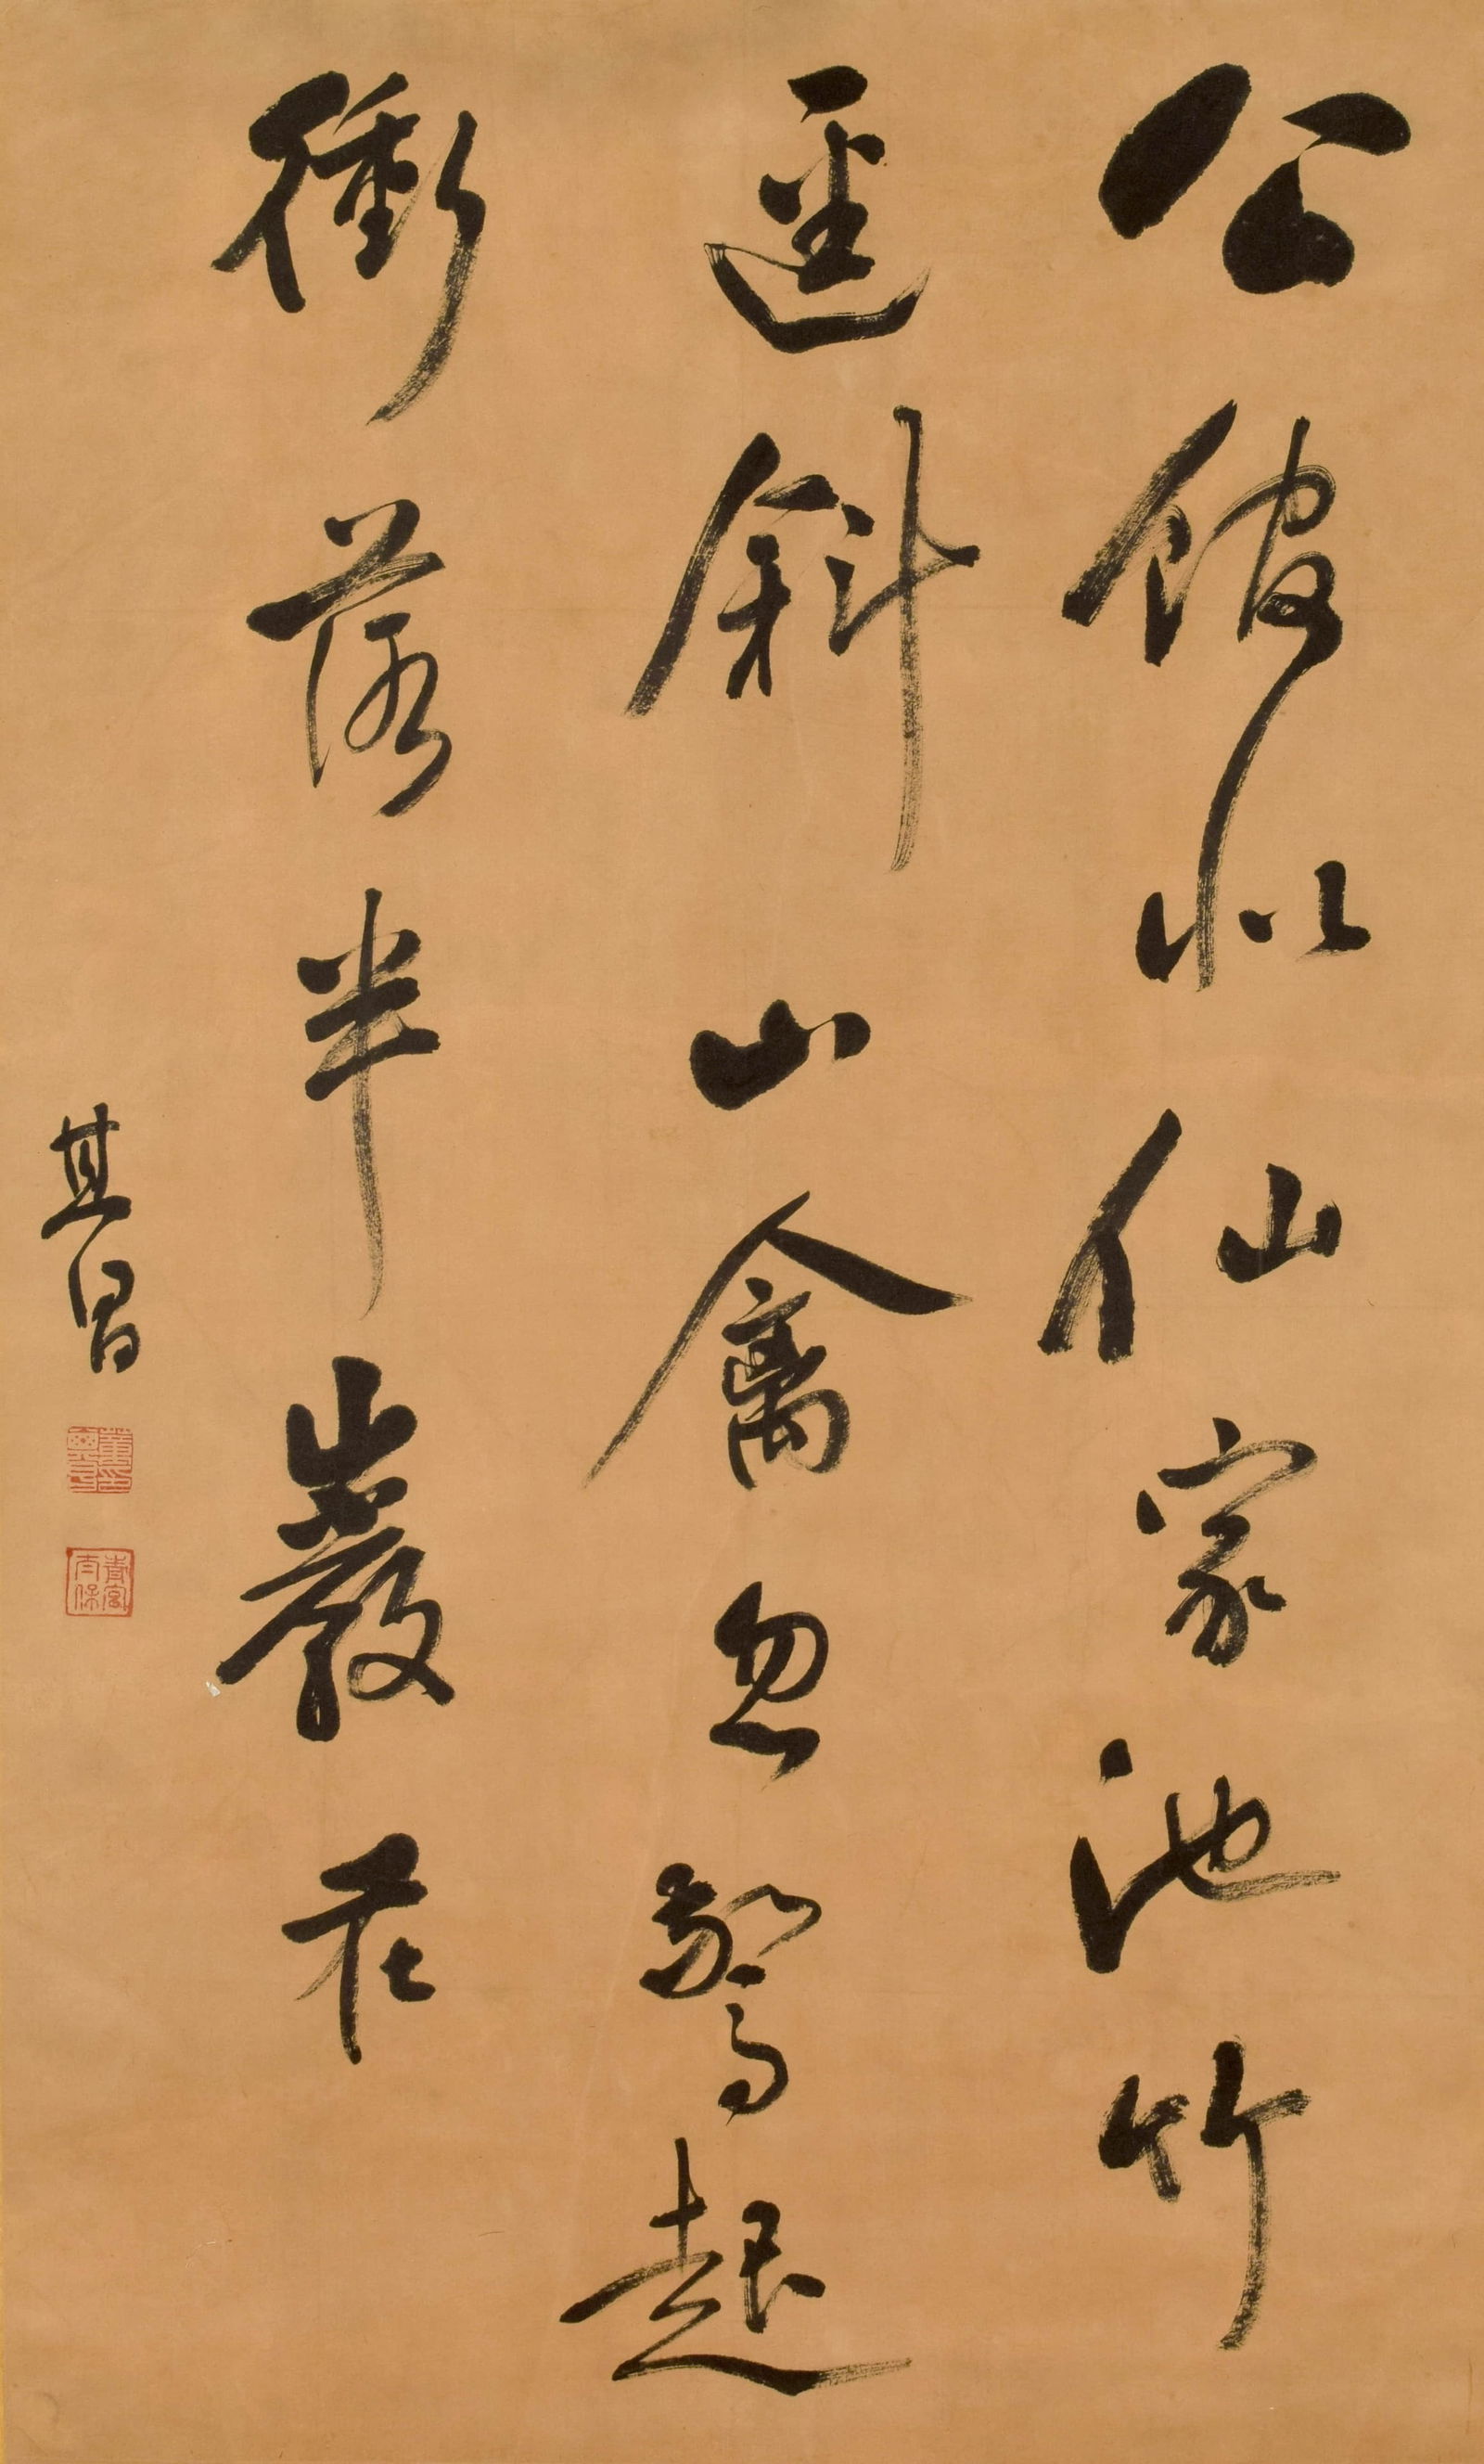 公館似仙家池竹
逕斜山禽忽驚起
衝落半巖花
其昌
青宮太保